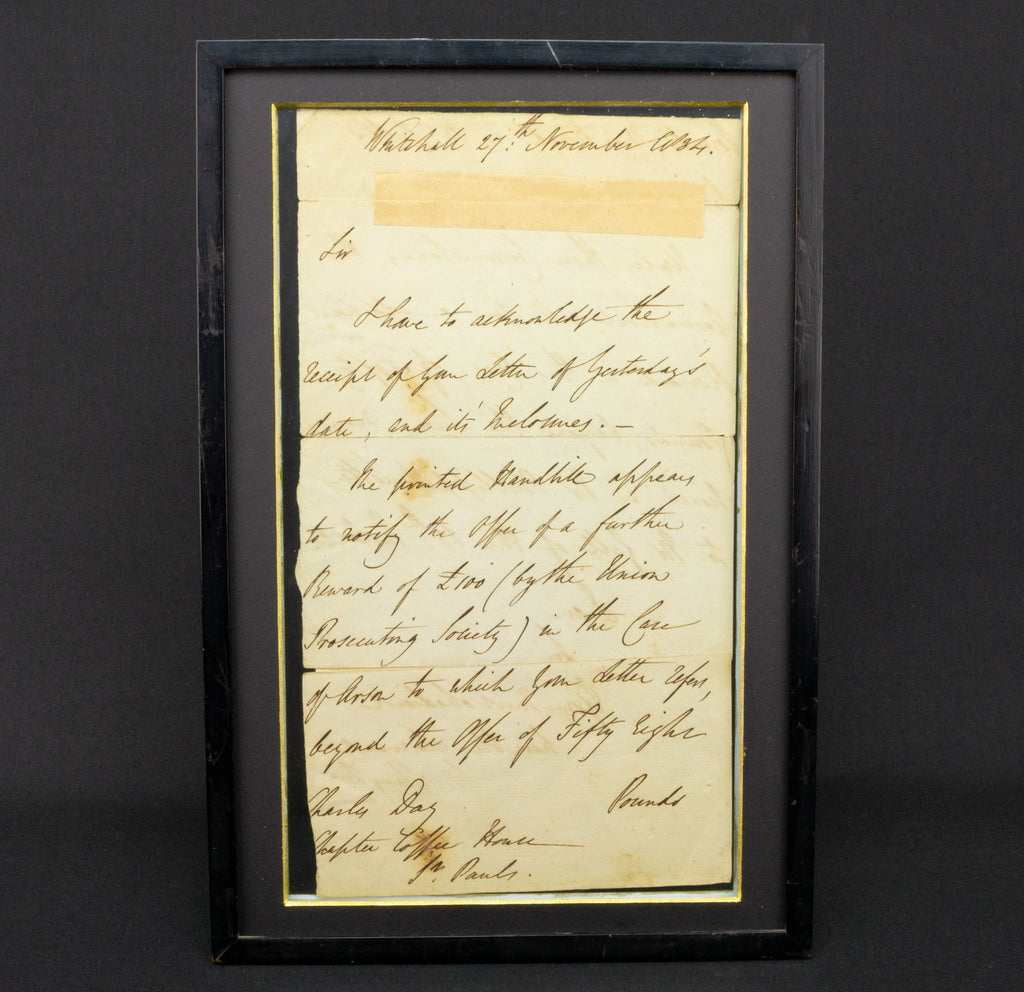 Whitehall 27th. November 1834.
Sir
I have to acknowledge the
receipt of your Letter of Yesterday's
date, and it's Inclosures. —
The printed Handbill appears
to notify the Offer of a further
Reward of £100 (by the Union
Prosecuting Society) in the Case
of Arson to which your Letter refers,
beyond the Offer of Fifty Eight
Pounds
Charles Day
Chapter Coffee House
St. Pauls.